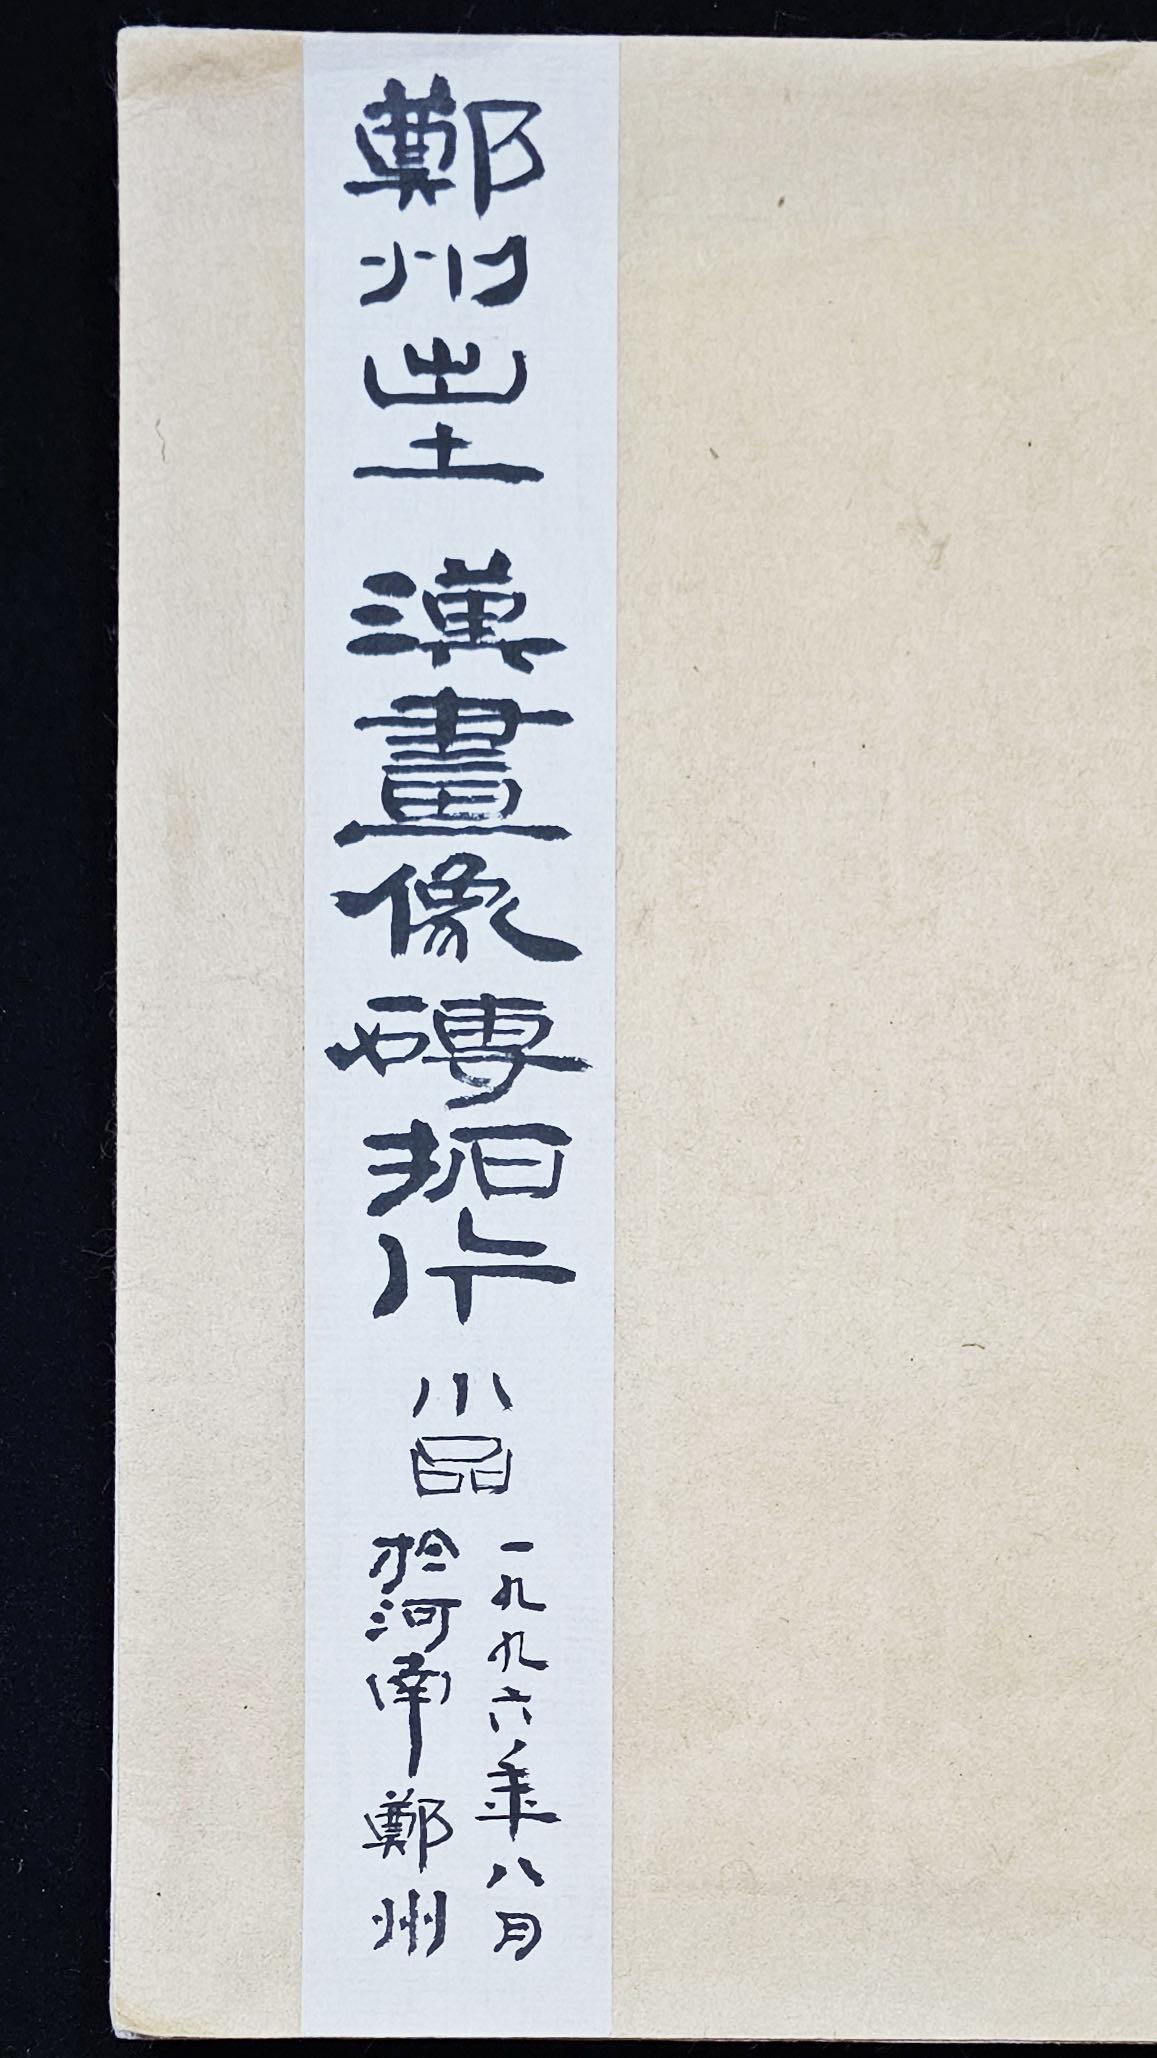 鄭州出土漢畫像磚拓片小品
一九九六年八月
於河南鄭州